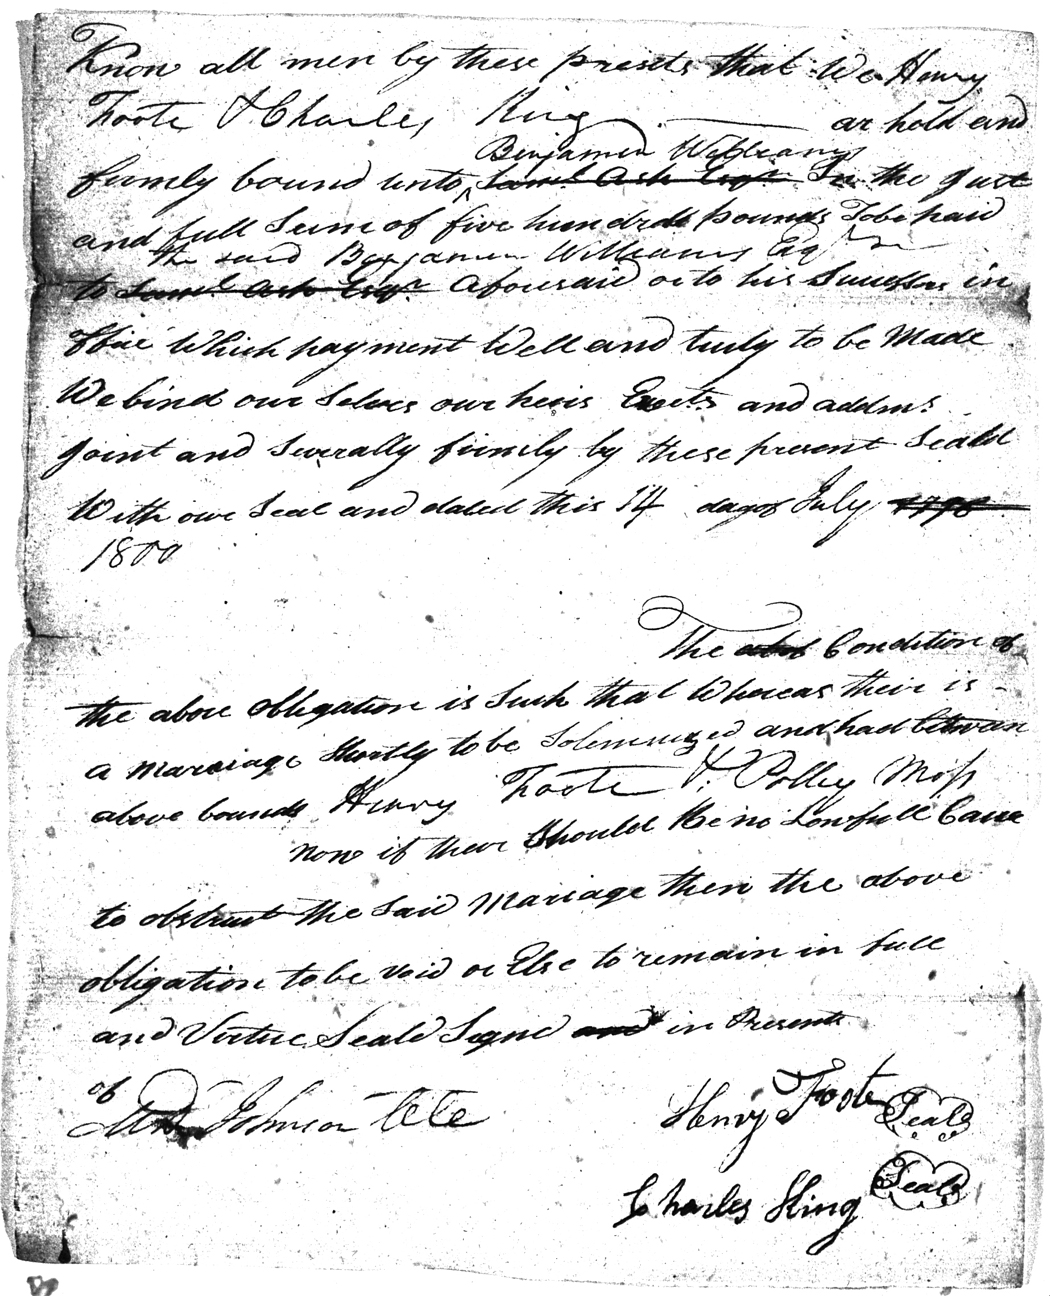 Know all men by these presets that We Henry
Foote & Charles King ar hold and
Benjamin Williams
firmly bound unto Saml Ash Esqr In the Just
and full Sum of five hundrds pounds Tobe paid
the said Benjamin Williams Esqr
to Saml Ash Esqr Aforesaid or to his Sucessors in
office Which payment Well and truly to be Made
We bind our Selves our heirs Exects and addms
Joint and Severally firmly by these present Seald
With our Seal and dated this 14 day of July 1798
1800
The Condition of
the above obligation is Such that Whereas their is
a marriage Shortly to be Solemnized and had betwean
above bounds Henry Foote & Polley Moss
Now if thear Should Be no Lawfull Cause
to obstruct the Said Mariage then the above
obligation to be void or Else to remain in full
and Virtue Seald Signd and in Present
of
Johnson
Henry Foote Seal
Charles King Seal